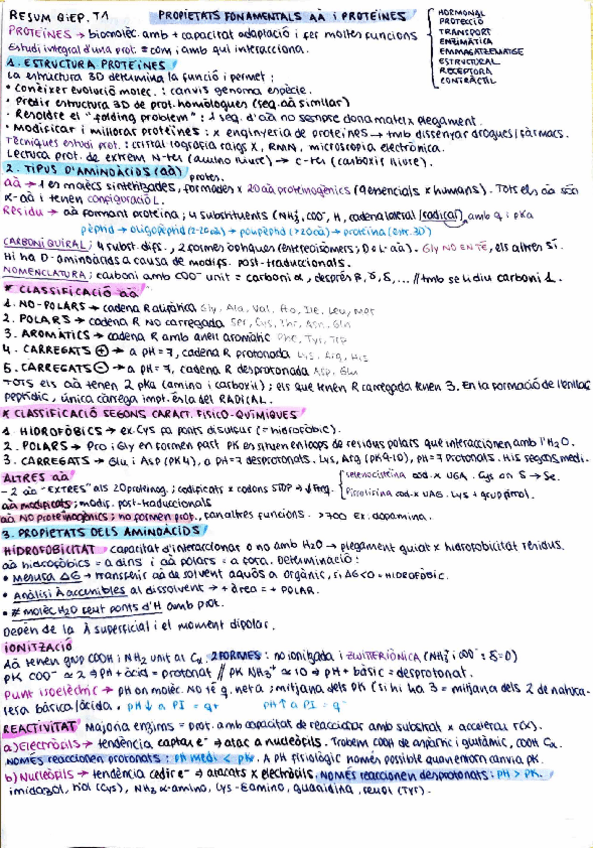 RESUM BIEP. T1
PROPIETATS FONAMENTALS AÀ I PROTEÏNES
HORMONAL
PROTECCIÓ
TRANSPORT
ENZIMÀTICA
EMMAGATZEMATGE
ESTRUCTURAL
RECEPTORA
CONTRÀCTIL
PROTEÏNES → biomolèc. amb + capacitat adaptació i fer moltes funcions
Estudi integral d'una prot. = com i amb qui interacciona.
1. ESTRUCTURA PROTEÏNES
La estructura 3D determina la funció i permet:
• Conèixer evolució molec. : canvis genoma espècie.
• Predir estructura 3D de prot. homòlogues (seq. aà similar)
• Resoldre el "folding problem": 1 seq. d'aà no sempre dona mateix plegament.
• Modificar i millorar proteïnes: x enginyeria de proteïnes → tmb dissenyar drogues/fàrmacs.
Tècniques estudi prot.: cristal·lografia raigs X, RMN, microscopia electrònica.
Lectura prot. de extrem N-ter (amino lliure) → C-ter (carboxil lliure).
2. TIPUS D'AMINOÀCIDS (aà) protes.
aà → 1es molècs sintetitzades, formades x 20 aà proteinogènics (9 essencials x humans). Tots els aà són
α-aà i tenen configuració L.
Residu → aà formant proteïna; 4 substituents (NH3+, COO-, H, cadena lateral (radical), amb q i pKa
pèptid → oligopèptid (2-20aà) → polipèptid (>20aà) → proteïna (estr. 3D)
CARBONI QUIRAL: 4 subst. difs., 2 formes òptiques (enantiòmers; D o L-aà). Gly NO EN TÉ, els altres sí.
Hi ha D-aminoàcids a causa de modifs. post-traduccionals.
NOMENCLATURA: carboni amb COO- unit = carboni α, després β, γ, δ, ... // tmb se li diu carboni 1.
* CLASSIFICACIÓ aà
1. NO-POLARS → cadena R alifàtica Gly, Ala, Val, Pro, Ile, Leu, Met
2. POLARS → cadena R NO carregada Ser, Cys, Thr, Asn, Gln
3. AROMÀTICS → cadena R amb anell aromàtic Phe, Tyr, Trp
4. CARREGATS ⊕ → a pH=7, cadena R protonada Lys, Arg, His
5. CARREGATS ⊖ → a pH=7, cadena R desprotonada Asp, Glu
Tots els aà tenen 2 pKa (amino i carboxil); els que tenen R carregada tenen 3. En la formació de l'enllaç
peptídic, única càrrega impt. és la del RADICAL.
* CLASSIFICACIÓ SEGONS CARACT. FÍSICO-QUÍMIQUES
1. HIDROFÒBICS → ex. Cys fa ponts disulfur (= hidrofòbic).
2. POLARS → Pro i Gly en formen part pk en situen en loops de residus polars que interaccionen amb l'H2O.
3. CARREGATS → Glu i Asp (PK4), a pH=7 desprotonats. Lys, Arg (PK9-10), pH=7 protonats. His segons medi.
ALTRES aà
- 2 aà "EXTRES" als 20 proteinog.; codificats x codons STOP → ↓ freq.
selenocisteïna cod. x UGA. Cys on S → Se.
Pirrolisina cod. x UAG. Lys + grup pirrol.
aà modificats: modif. post-traduccionals
aà NO proteinogènics: no formen prot., fan altres funcions. >700 Ex: dopamina.
3. PROPIETATS DELS AMINOÀCIDS
HIDROFOBICITAT capacitat d'interaccionar o no amb H2O → plegament guiat x hidrofobicitat residus.
aà hidrofòbics = a dins i aà polars = a fora. Determinació:
• Mesura ΔG → transferir aà de solvent aquós a orgànic, si ΔG<0 = HIDROFÒBIC.
• Anàlisi À accessibles al dissolvent → + àrea = + POLAR.
• # molèc H2O fent ponts d'H amb prot.
Depèn de la À superficial i el moment dipolar.
IONITZACIÓ
Aà tenen grup COOH i NH2 unit al Cα. 2 FORMES: no ionitzada i ZWITTERIÒNICA (NH3+ i COO-: δ=0)
PK COO- ≃ 2 → pH + àcid = protonat // PK NH3+ ≃ 10 → pH + bàsic = desprotonat.
Punt isoelèctric → pH on molèc. NO té q. neta; mitjana dels PK (si hi ha 3 = mitjana dels 2 de natura-
lesa bàsica/àcida. pH↓ a PI = q+ pH↑ a PI = q-
REACTIVITAT Majoria enzims = prot. amb capacitat de reaccionar amb substrat x accelerar r(x).
a) Electròfils → tendència captar e- → atac a nucleòfils. Trobem COOH de aspàrtic i glutàmic, COOH Cα.
NOMÉS reaccionen protonats: pH medi < PK. A pH fisiològic només possible quan entorn canvia pK.
b) Nucleòfils → tendència cedir e- → atacats x electròfils. NOMÉS reaccionen desprotonats: pH > PK.
imidazol, tiol (Cys), NH2 α-amino, Lys-Eamino, guanidina, fenol (Tyr).